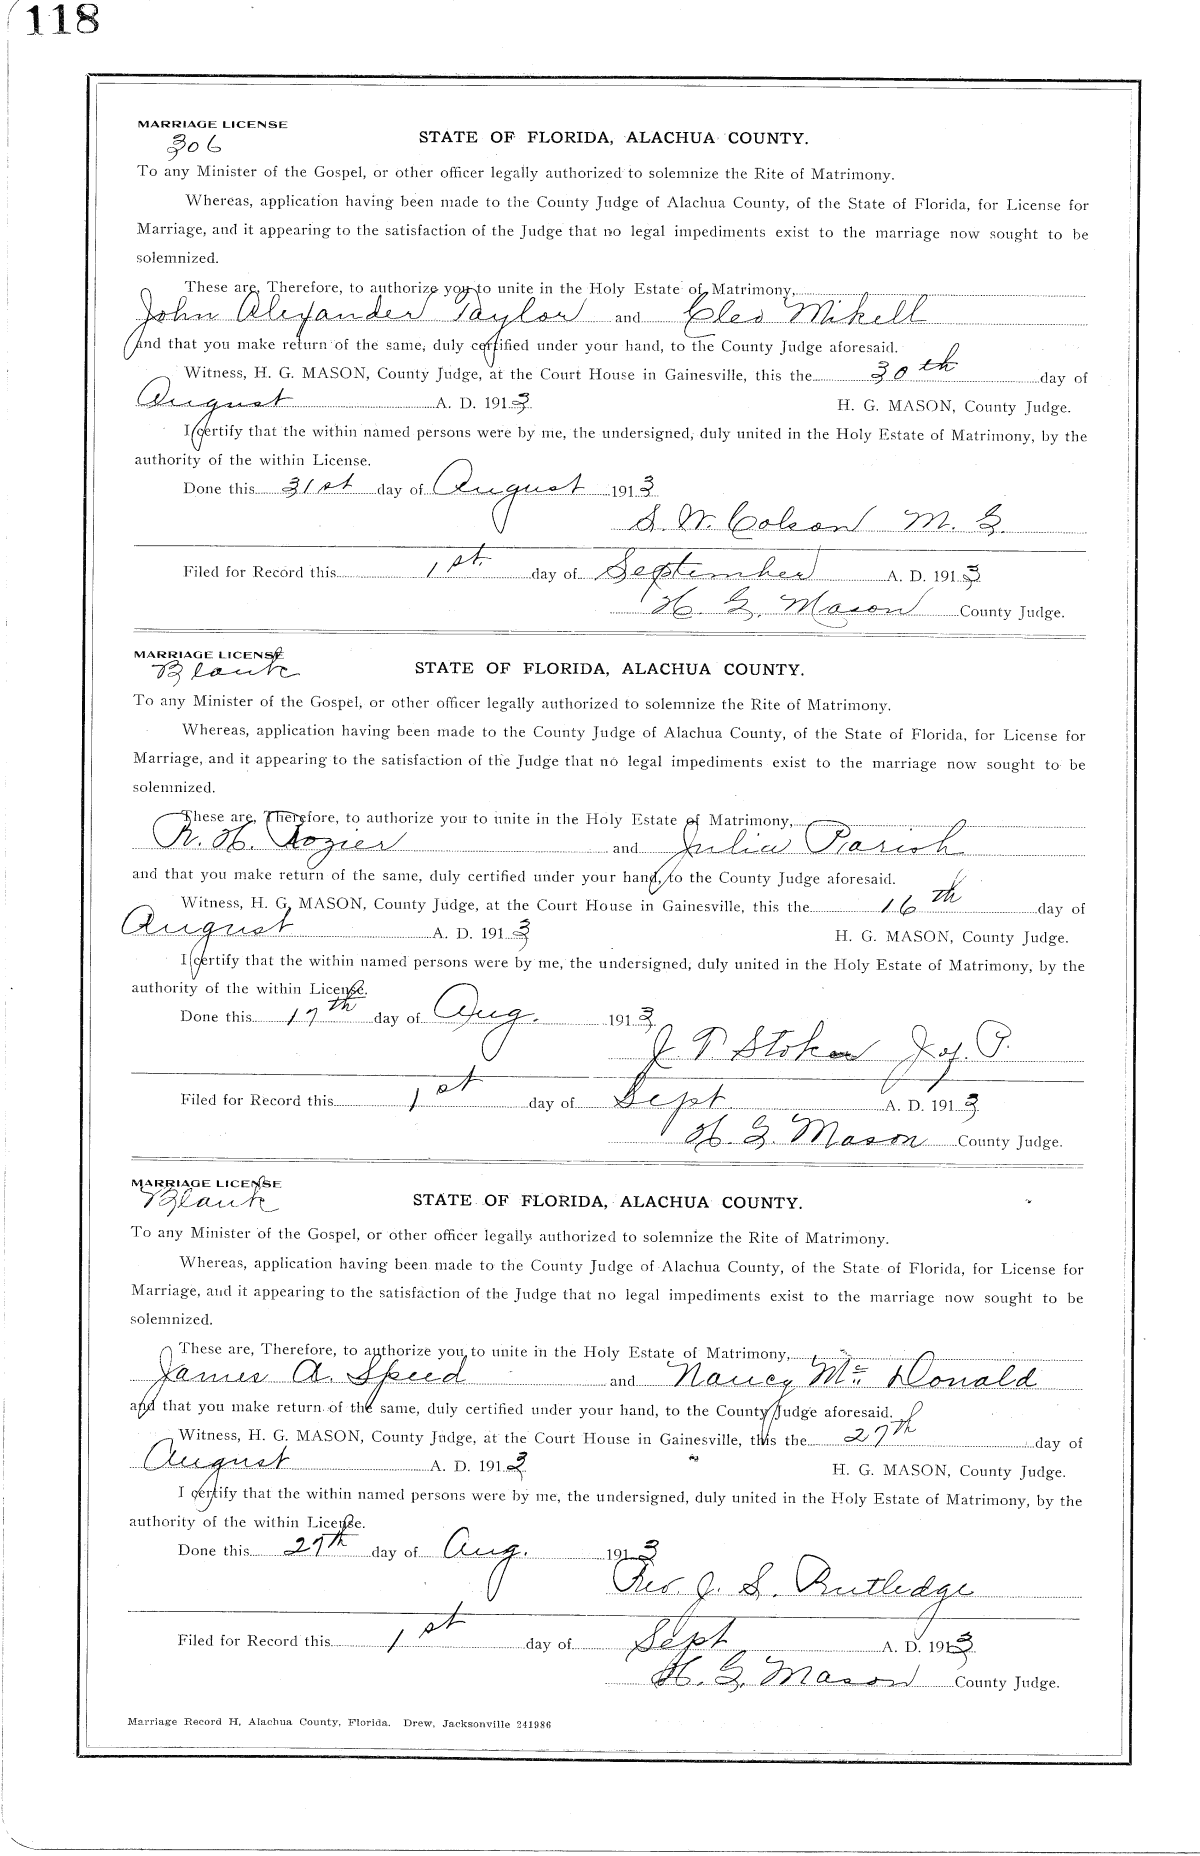 118
MARRIAGE LICENSE
306
STATE OF FLORIDA, ALACHUA COUNTY.
To any Minister of the Gospel, or other officer legally authorized to solemnize the Rite of Matrimony.
Whereas, application having been made to the County Judge of Alachua County, of the State of Florida, for License for
Marriage, and it appearing to the satisfaction of the Judge that no legal impediments exist to the marriage now sought to be
solemnized.
These are, Therefore, to authorize you to unite in the Holy Estate of Matrimony,
John Alexander Taylor and Cleo Mikell
and that you make return of the same, duly certified under your hand, to the County Judge aforesaid.
Witness, H. G. MASON, County Judge, at the Court House in Gainesville, this the 30th day of
August A. D. 1913 H. G. MASON, County Judge.
I certify that the within named persons were by me, the undersigned, duly united in the Holy Estate of Matrimony, by the
authority of the within License.
Done this 31st day of August 1913
S. W. Colson M. G.
Filed for Record this 1st. day of September A. D. 1913
H. G. Mason County Judge.
MARRIAGE LICENSE
Blank
STATE OF FLORIDA, ALACHUA COUNTY.
To any Minister of the Gospel, or other officer legally authorized to solemnize the Rite of Matrimony.
Whereas, application having been made to the County Judge of Alachua County, of the State of Florida, for License for
Marriage, and it appearing to the satisfaction of the Judge that no legal impediments exist to the marriage now sought to be
solemnized.
These are, Therefore, to authorize you to unite in the Holy Estate of Matrimony,
R. H. Rozier and Julia Parish
and that you make return of the same, duly certified under your hand, to the County Judge aforesaid.
Witness, H. G. MASON, County Judge, at the Court House in Gainesville, this the 16th day of
August A. D. 1913 H. G. MASON, County Judge.
I certify that the within named persons were by me, the undersigned, duly united in the Holy Estate of Matrimony, by the
authority of the within License.
Done this 17th day of Aug. 1913
J. T Stokes J of. P.
Filed for Record this 1st day of Sept A. D. 1913
H. G. Mason County Judge.
MARRIAGE LICENSE
Blank
STATE OF FLORIDA, ALACHUA COUNTY.
To any Minister of the Gospel, or other officer legally authorized to solemnize the Rite of Matrimony.
Whereas, application having been made to the County Judge of Alachua County, of the State of Florida, for License for
Marriage, and it appearing to the satisfaction of the Judge that no legal impediments exist to the marriage now sought to be
solemnized.
These are, Therefore, to authorize you to unite in the Holy Estate of Matrimony,
James A. Speed and Nancy Mc Donald
and that you make return of the same, duly certified under your hand, to the County Judge aforesaid.
Witness, H. G. MASON, County Judge, at the Court House in Gainesville, this the 27th day of
August A. D. 1913 H. G. MASON, County Judge.
I certify that the within named persons were by me, the undersigned, duly united in the Holy Estate of Matrimony, by the
authority of the within License.
Done this 27th day of Aug. 1913
Rev. J. S. Rutledge
Filed for Record this 1st day of Sept A. D. 1913
H. G. Mason County Judge.
Marriage Record H, Alachua County, Florida. Drew, Jacksonville 241986